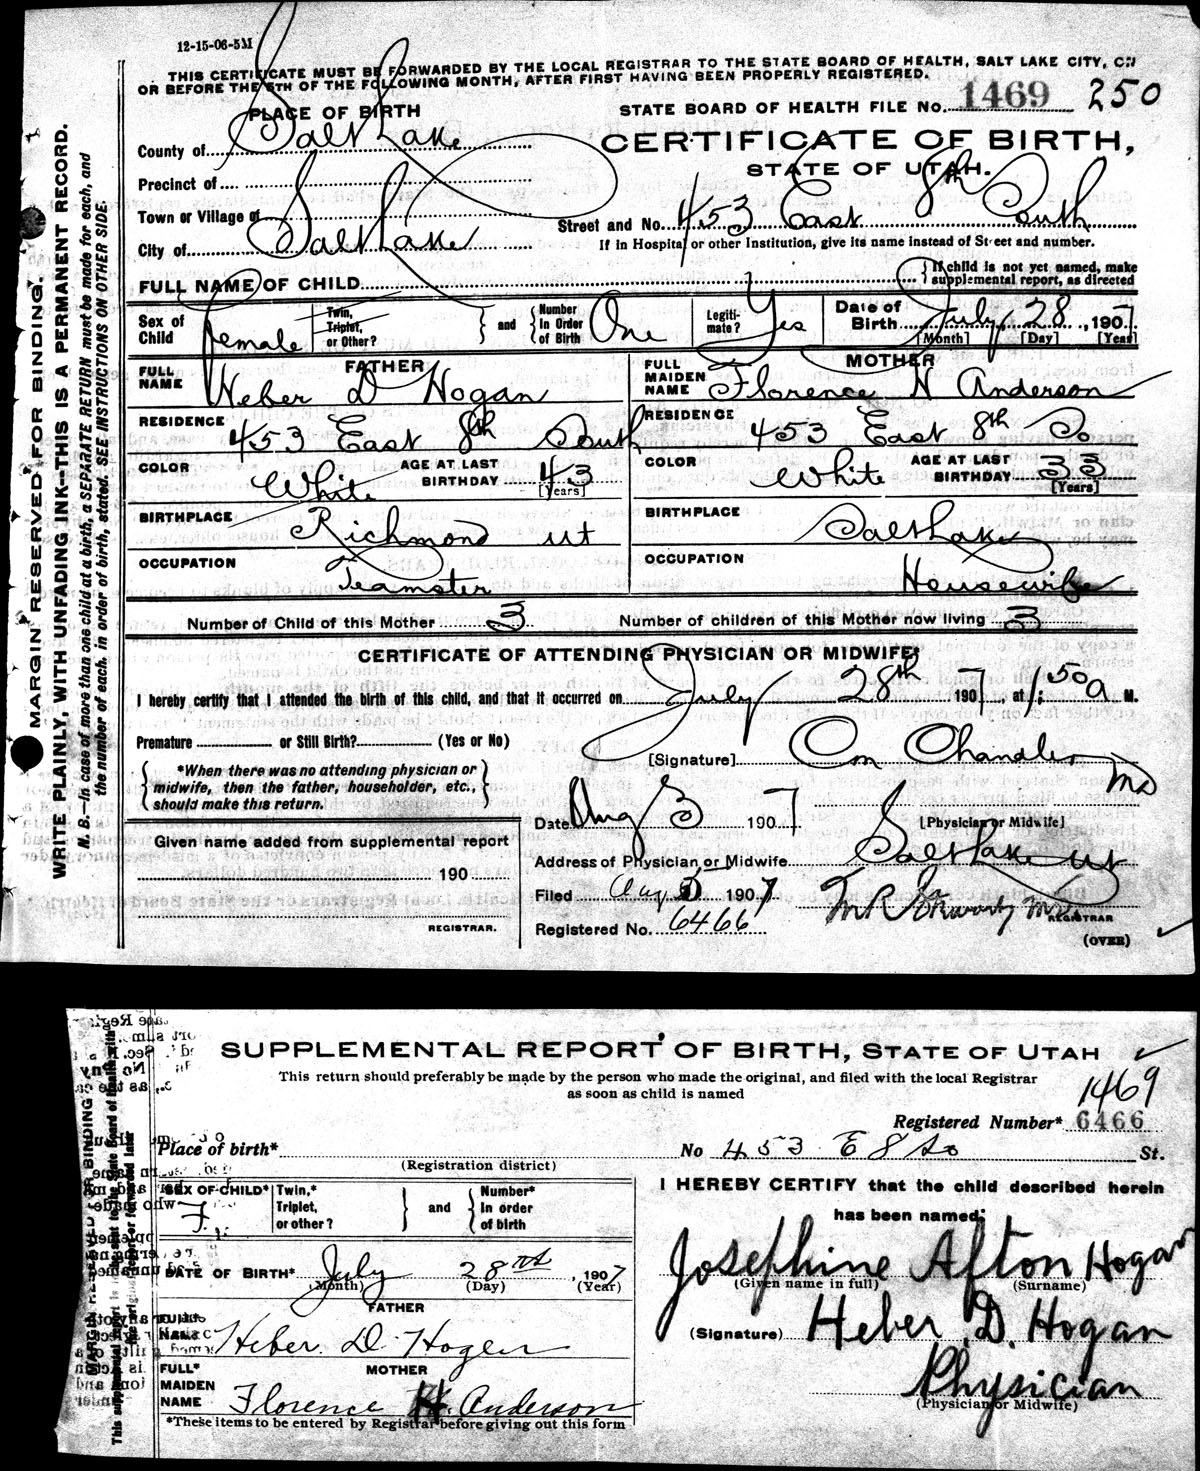 12-15-06-5M
THIS CERTIFICATE MUST BE FORWARDED BY THE LOCAL REGISTRAR TO THE STATE BOARD OF HEALTH, SALT LAKE CITY, ON
OR BEFORE THE 5TH OF THE FOLLOWING MONTH, AFTER FIRST HAVING BEEN PROPERLY REGISTERED.
PLACE OF BIRTH
STATE BOARD OF HEALTH FILE NO. 1469 250
County of Salt Lake
CERTIFICATE OF BIRTH,
STATE OF UTAH.
Precinct of
Town or Village of
Street and No. 453 East 8th South
City of Salt Lake
If in Hospital or other Institution, give its name instead of Street and number.
FULL NAME OF CHILD
{If child is not yet named, make
supplemental report, as directed
Sex of Child female
Twin, Triplet, or Other?
and
Number in Order of Birth One
Legitimate? Yes
Date of Birth July 28, 1907
[Month] [Day] [Year]
FATHER
MOTHER
FULL NAME Heber D Hogan
FULL MAIDEN NAME Florence H Anderson
RESIDENCE 453 East 8th South
RESIDENCE 453 East 8th So
COLOR White AGE AT LAST BIRTHDAY 43 [Years]
COLOR White AGE AT LAST BIRTHDAY 33 [Years]
BIRTHPLACE Richmond ut
BIRTHPLACE Salt Lake
OCCUPATION Teamster
OCCUPATION Housewife
Number of Child of this Mother 3
Number of children of this Mother now living 3
CERTIFICATE OF ATTENDING PHYSICIAN OR MIDWIFE*
I hereby certify that I attended the birth of this child, and that it occurred on July 28th 1907, at 1:50 a M.
Premature or Still Birth? (Yes or No)
[Signature] Chandler MD
{*When there was no attending physician or
midwife, then the father, householder, etc.,
should make this return.}
Date Aug 3 1907
[Physician or Midwife]
Given name added from supplemental report
190
REGISTRAR.
Address of Physician or Midwife Salt Lake ut
Filed Aug 5 1907
REGISTRAR
Registered No. 6466
(OVER)
MARGIN RESERVED FOR BINDING.
WRITE PLAINLY, WITH UNFADING INK—THIS IS A PERMANENT RECORD.
N. B.—In case of more than one child at a birth, a SEPARATE RETURN must be made for each, and
the number of each, in order of birth, stated. SEE INSTRUCTIONS ON OTHER SIDE.
SUPPLEMENTAL REPORT OF BIRTH, STATE OF UTAH
This return should preferably be made by the person who made the original, and filed with the local Registrar
as soon as child is named
1469
Registered Number* 6466
Place of birth*
No 453 E 8 So St.
(Registration district)
SEX OF CHILD* F.
Twin,* Triplet, or other?
and
Number* in order of birth
I HEREBY CERTIFY that the child described herein
has been named:
DATE OF BIRTH* July 28th, 1907
(Month) (Day) (Year)
Josephine Afton Hogan
(Given name in full) (Surname)
FATHER
FULL* NAME Heber D. Hogan
(Signature) Heber D. Hogan
MOTHER
FULL* MAIDEN NAME Florence H. Anderson
Physician
(Physician or Midwife)
*These items to be entered by Registrar before giving out this form